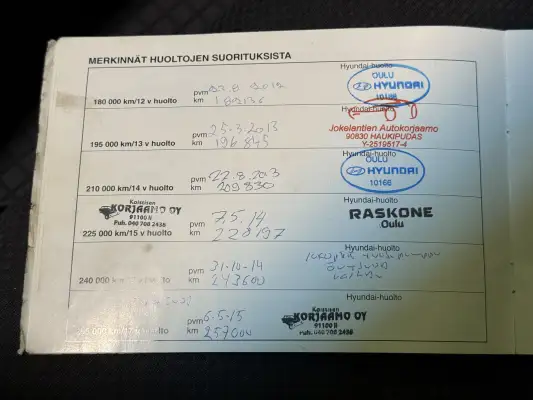 MERKINNÄT HUOLTOJEN SUORITUKSISTA
Hyundai-huolto
pvm 23.8 2012
OULU
HYUNDAI
10166
180 000 km/12 v huolto
km
Hyundai-huolto
pvm 25.3.2013
Jokelantien Autokorjaamo
90830 HAUKIPUDAS
Y-2519517-4
195 000 km/13 v huolto
km 196845
Hyundai-huolto
pvm 22.8.2013
OULU
HYUNDAI
10166
210 000 km/14 v huolto
km 209830
Hyundai-huolto
KORJAAMO OY
91100 II
Puh. 040 708 2436
pvm 7.5.14
RASKONE
Oulu
225 000 km/15 v huolto
km 228197
Hyundai-huolto
pvm 31-10-14
240 000 huolto
km 243600
Hyundai-huolto
pvm 6-5-15
KORJAAMO OY
91100 II
Puh. 040 708 2436
huolto
km 257000